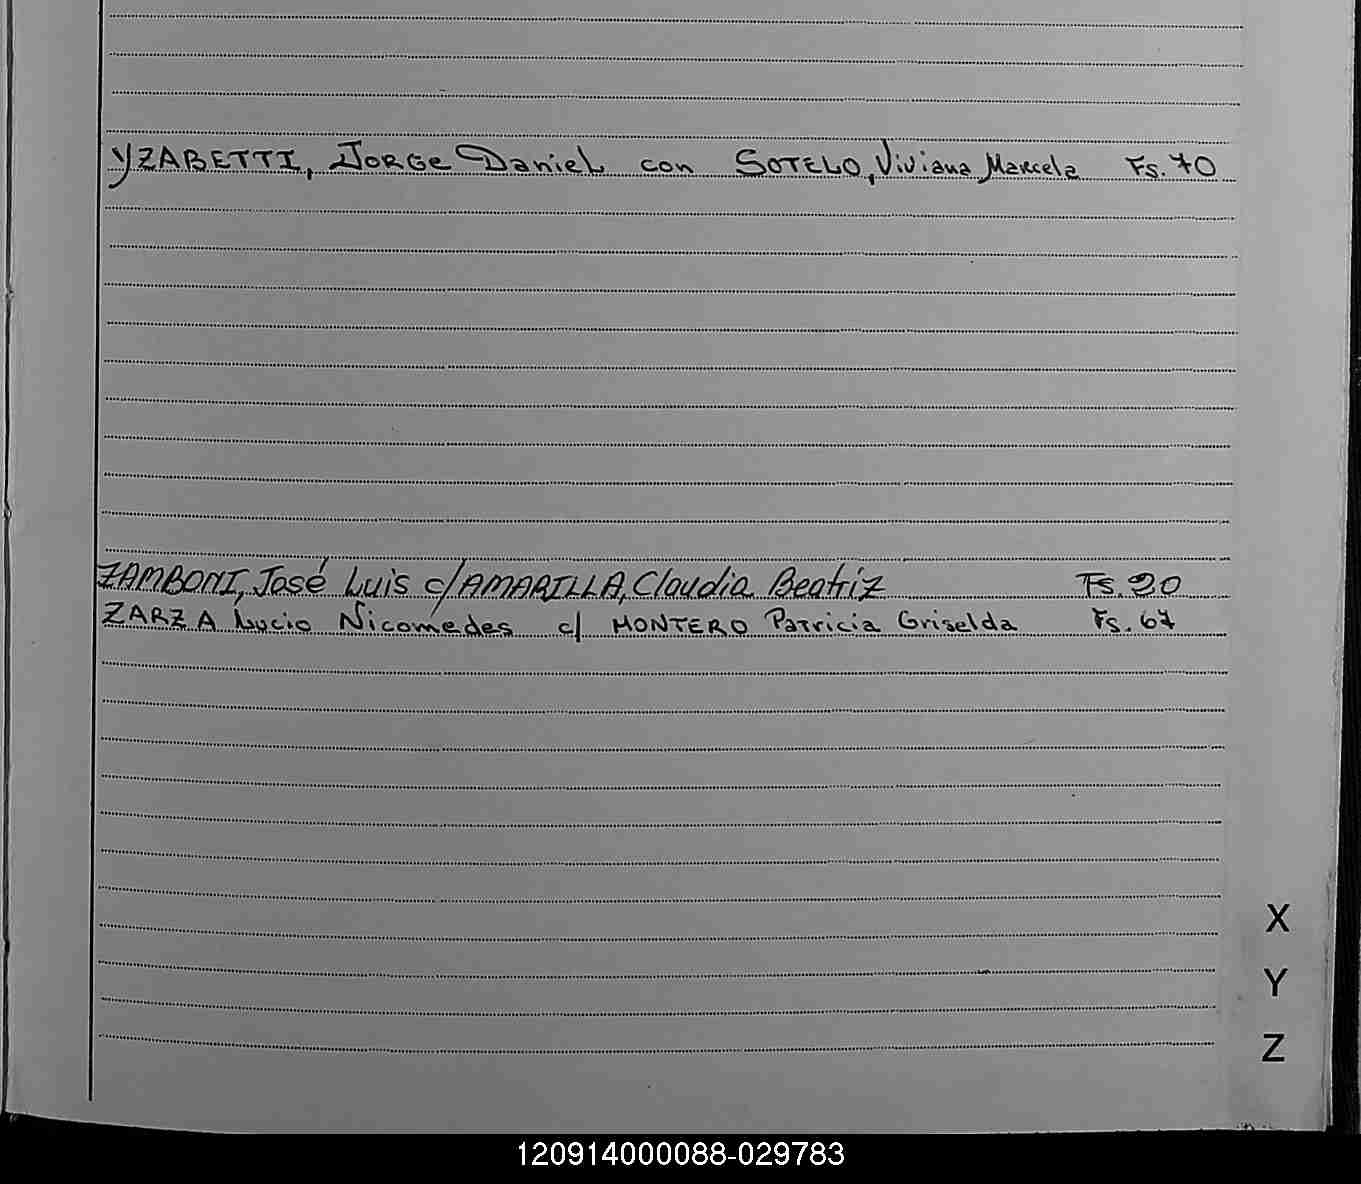 YZABETTI, JORGE Daniel con SOTELO, Viviana Marcela Fs. 70
ZAMBONI, José Luis c/ AMARILLA, Claudia Beatriz Fs. 20
ZARZA Lucio Nicomedes c/ MONTERO Patricia Griselda Fs. 67
X
Y
Z
120914000088-029783